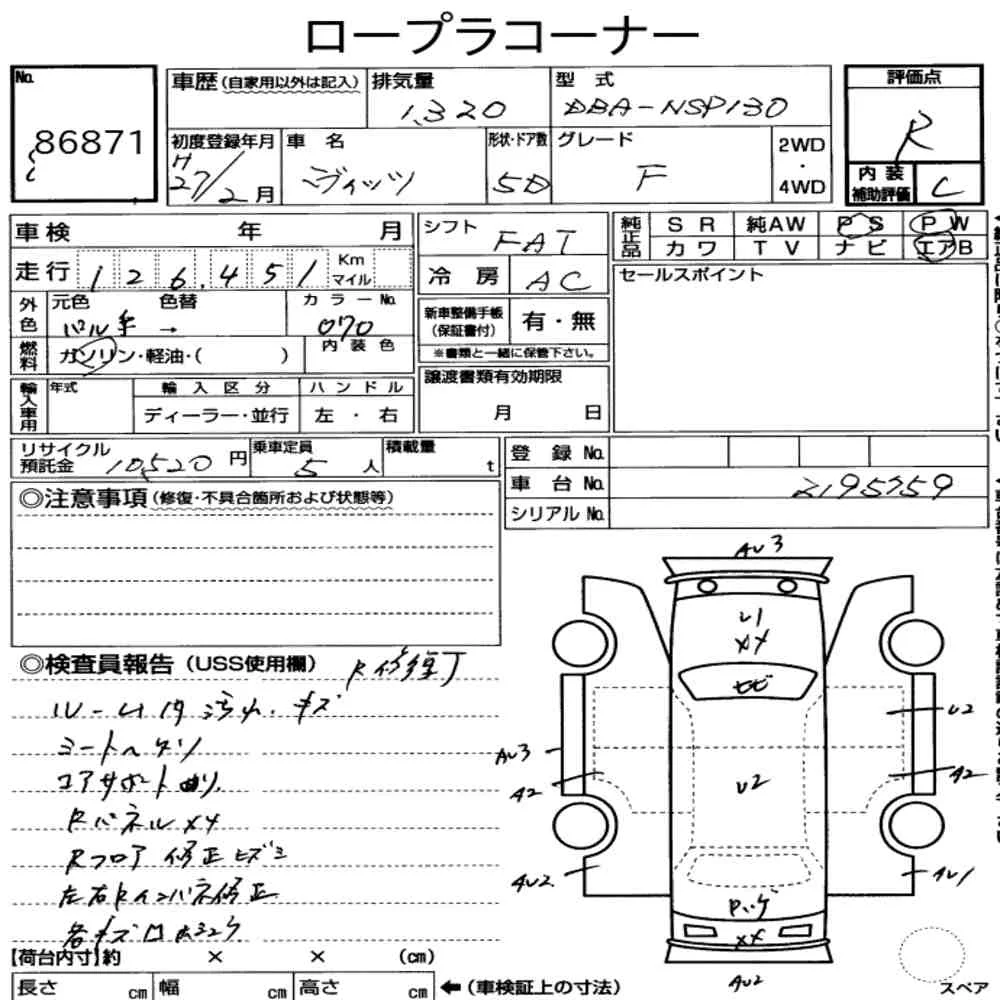 ロープラコーナー
No. 86871
車歴(自家用以外は記入) 排気量 1,320 型式 DBA-NSP130 評価点 R
初度登録年月 H 27/2月 車名 ヴィッツ 形状・ドア数 5D グレード F 2WD・4WD 内装補助評価 C
車検 年 月 シフト FAT 純正品 SR 純AW PS PW
走行 126,451 Km マイル 冷房 AC カワ TV ナビ エアB
外色 元色 パール 色替 → カラーNo. 070 新車整備手帳(保証書付) 有・無 セールスポイント
※書類と一緒に保管下さい。
燃料 ガソリン・軽油・( ) 内装色
譲渡書類有効期限 月 日
輸入車用 年式 輸入区分 ハンドル
ディーラー・並行 左・右
リサイクル預託金 10,520円 乗車定員 5人 積載量 t 登録No.
車台No. 2195759
シリアルNo.
◎注意事項(修復・不具合箇所および状態等)
◎検査員報告(USS使用欄) R修復
ルーム内汚れ、キズ
シートヘタリ
コアサポート曲り
RパネルXX
Rフロア修正ヒズミ
左右Rインパネ修正
各キズ
AU3
U1
XX
U2
U2
AU3
A2
A2
AU2
AU1
XX
AU2
【荷台内寸】約 × × (cm)
長さ cm 幅 cm 高さ cm ←(車検証上の寸法)
スペア